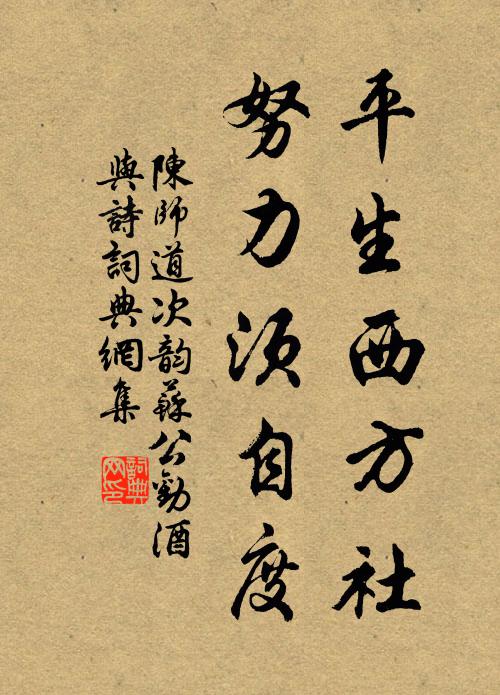 平生西方社
努力須自度
陳師道次韵蘇公勸酒
與詩詞典網集
詞典网印